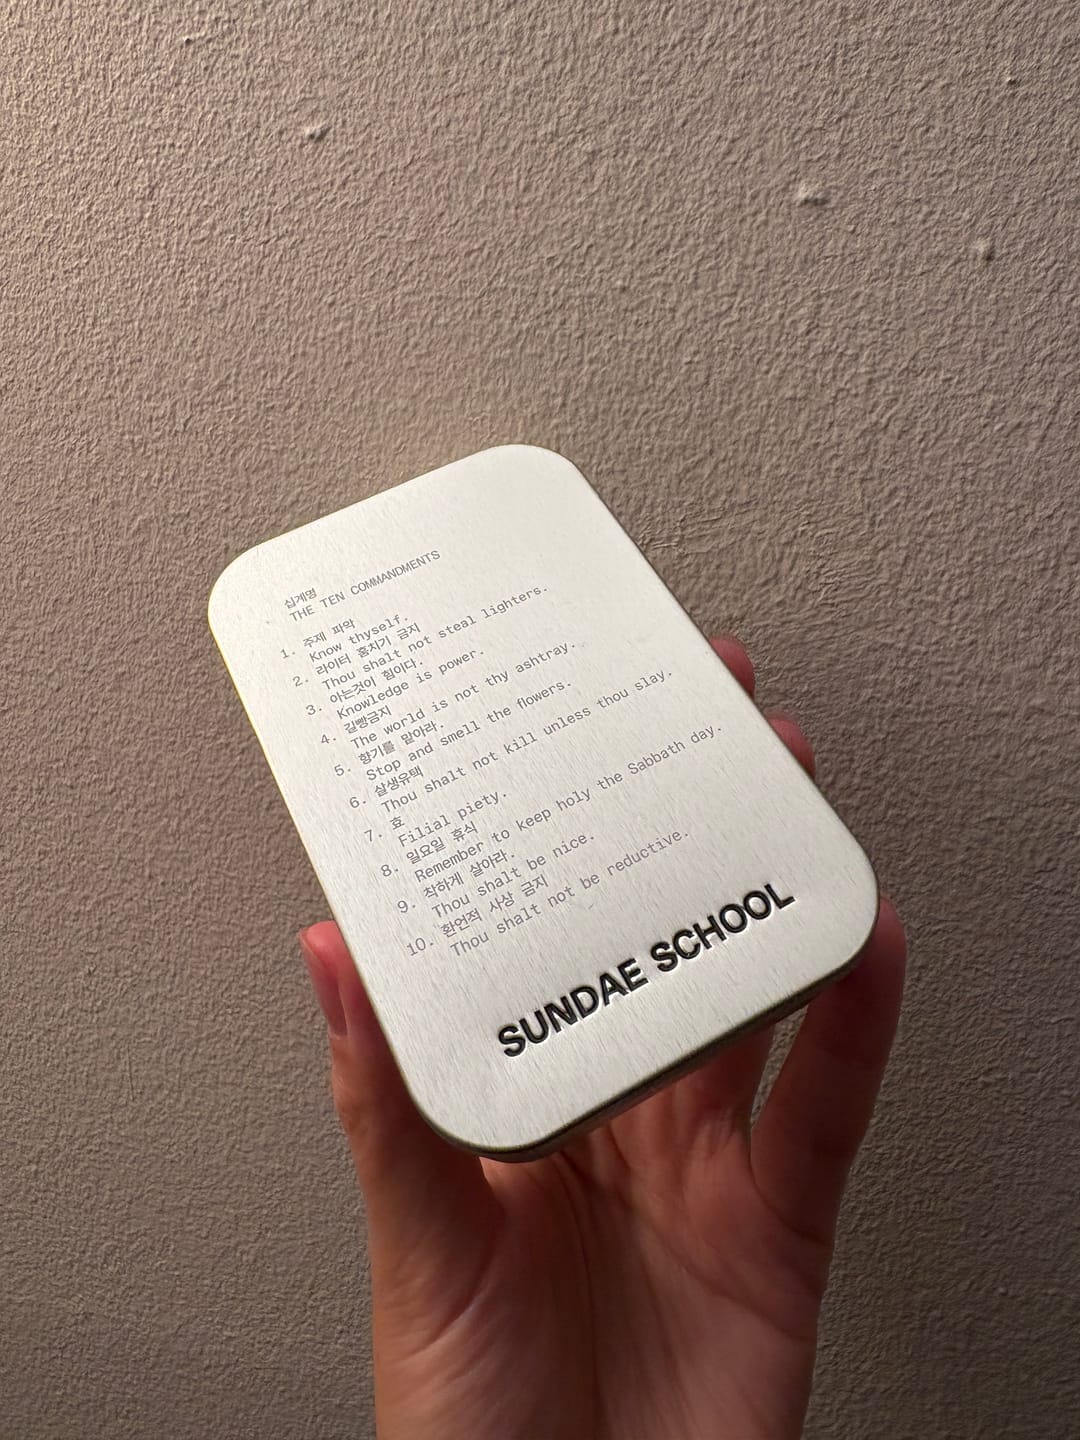 십계명
THE TEN COMMANDMENTS
1. 주제 파악
Know thyself.
2. 라이터 훔치기 금지
Thou shalt not steal lighters.
3. 아는것이 힘이다.
Knowledge is power.
4. 길빵금지
The world is not thy ashtray.
5. 향기를 맡아라.
Stop and smell the flowers.
6. 살생유택
Thou shalt not kill unless thou slay.
7. 효
Filial piety.
8. 일요일 휴식
Remember to keep holy the Sabbath day.
9. 착하게 살아라.
Thou shalt be nice.
10. 환언적 사상 금지
Thou shalt not be reductive.
SUNDAE SCHOOL